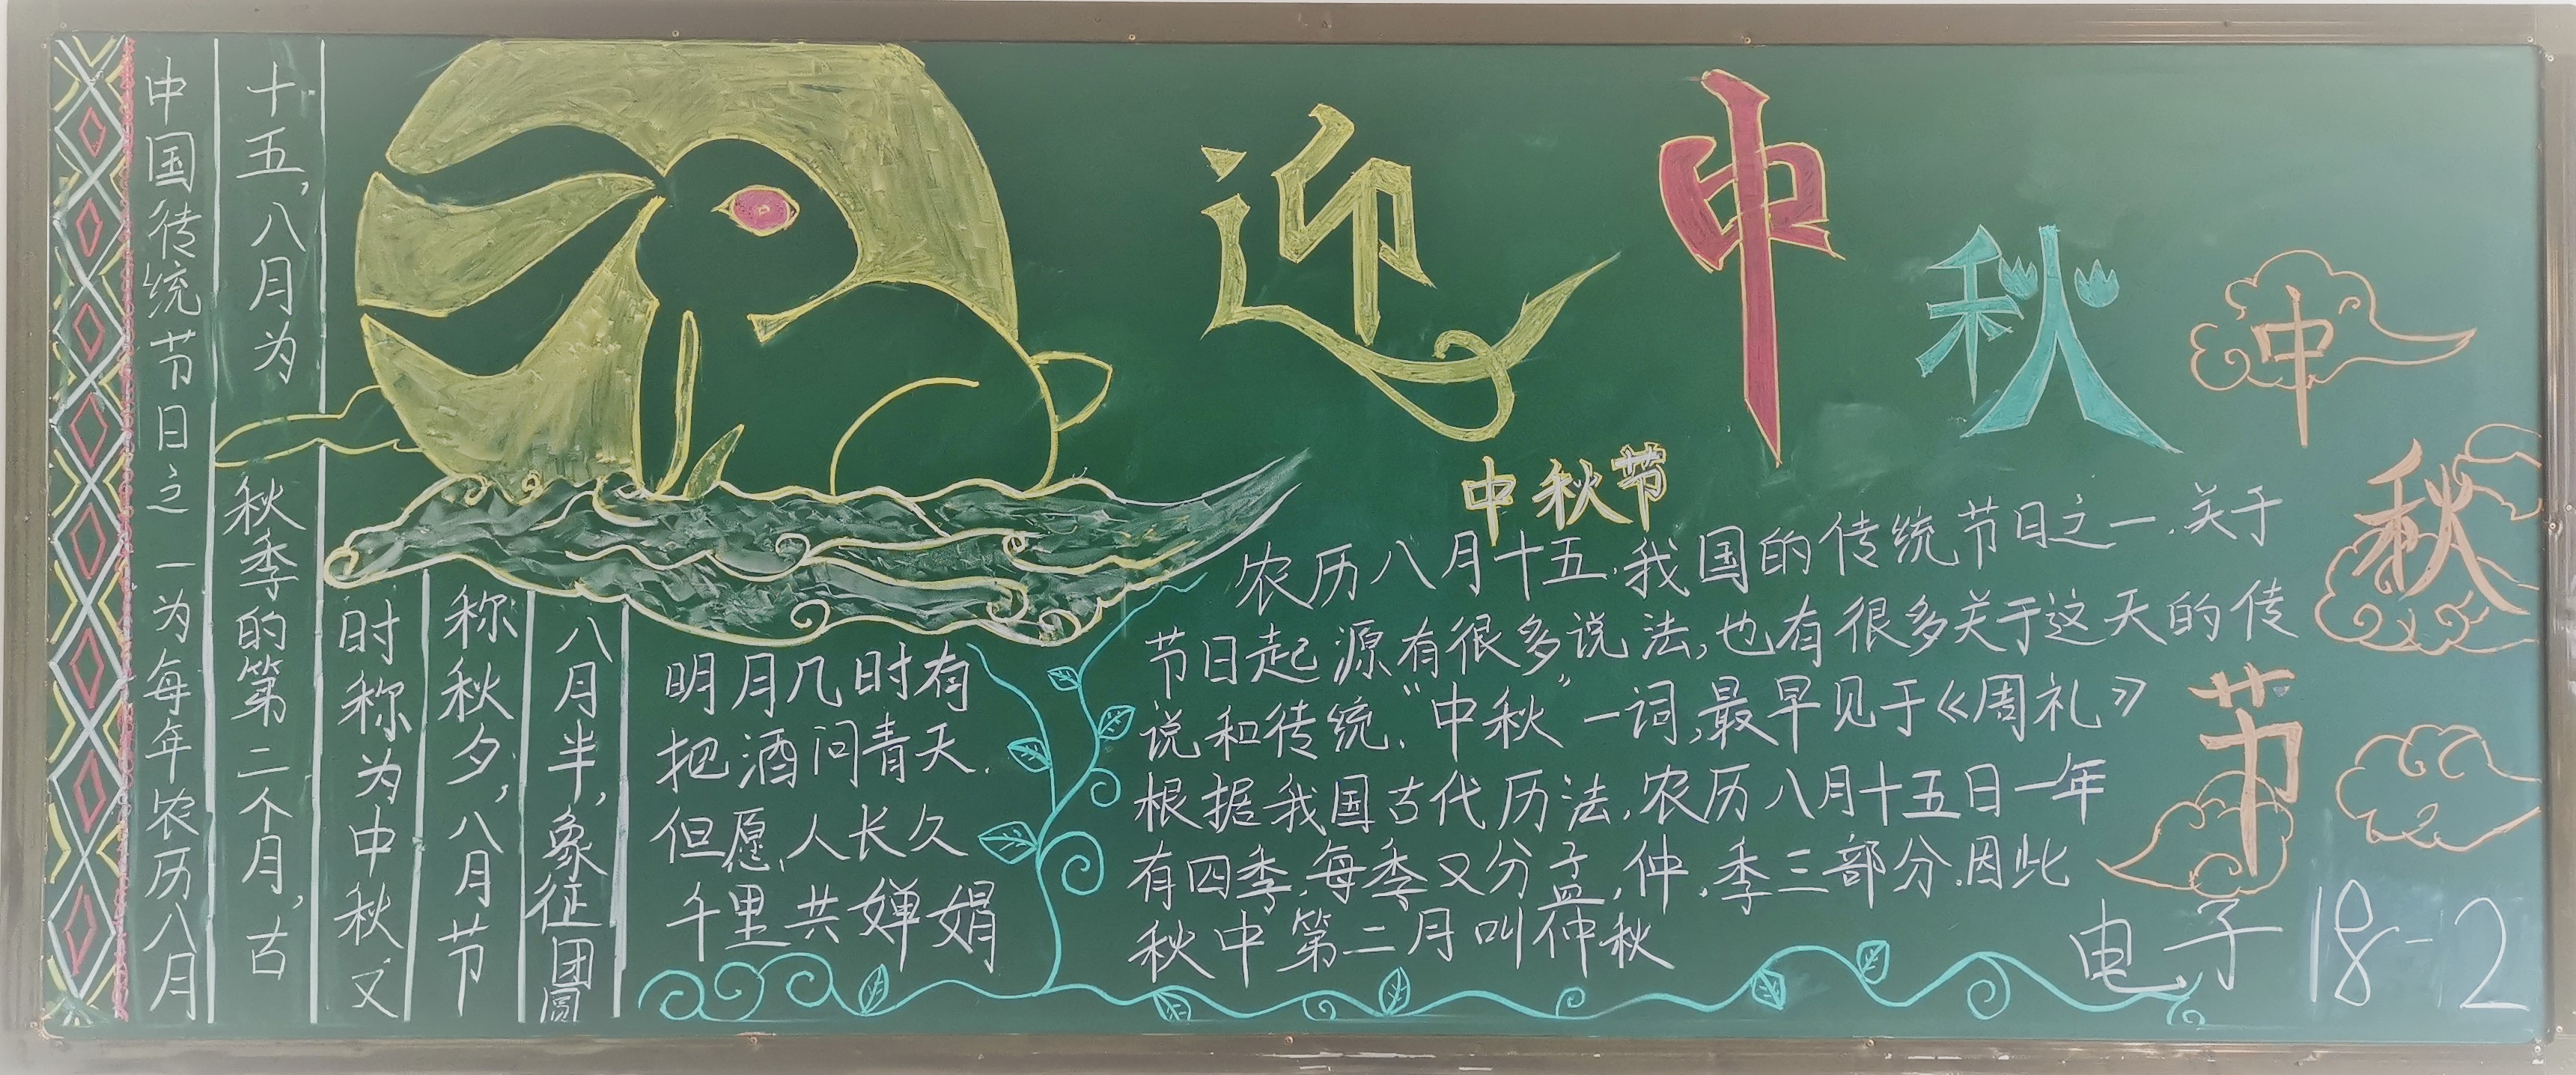 迎中秋
中国传统节日之一为每年农历八月
十五,八月为秋季的第二个月,古
时称为中秋又
称秋夕,八月节
八月半,象征团圆
明月几时有
把酒问青天.
但愿,人长久
千里共婵娟
中秋节
农历八月十五,我国的传统节日之一.关于
节日起源有很多说法,也有很多关于这天的传
说和传统,“中秋”一词,最早见于《周礼》
根据我国古代历法,农历八月十五日一年
有四季,每季又分孟,仲,季三部分.因此
秋中第二月叫仲秋
中
秋
节
电子18-2